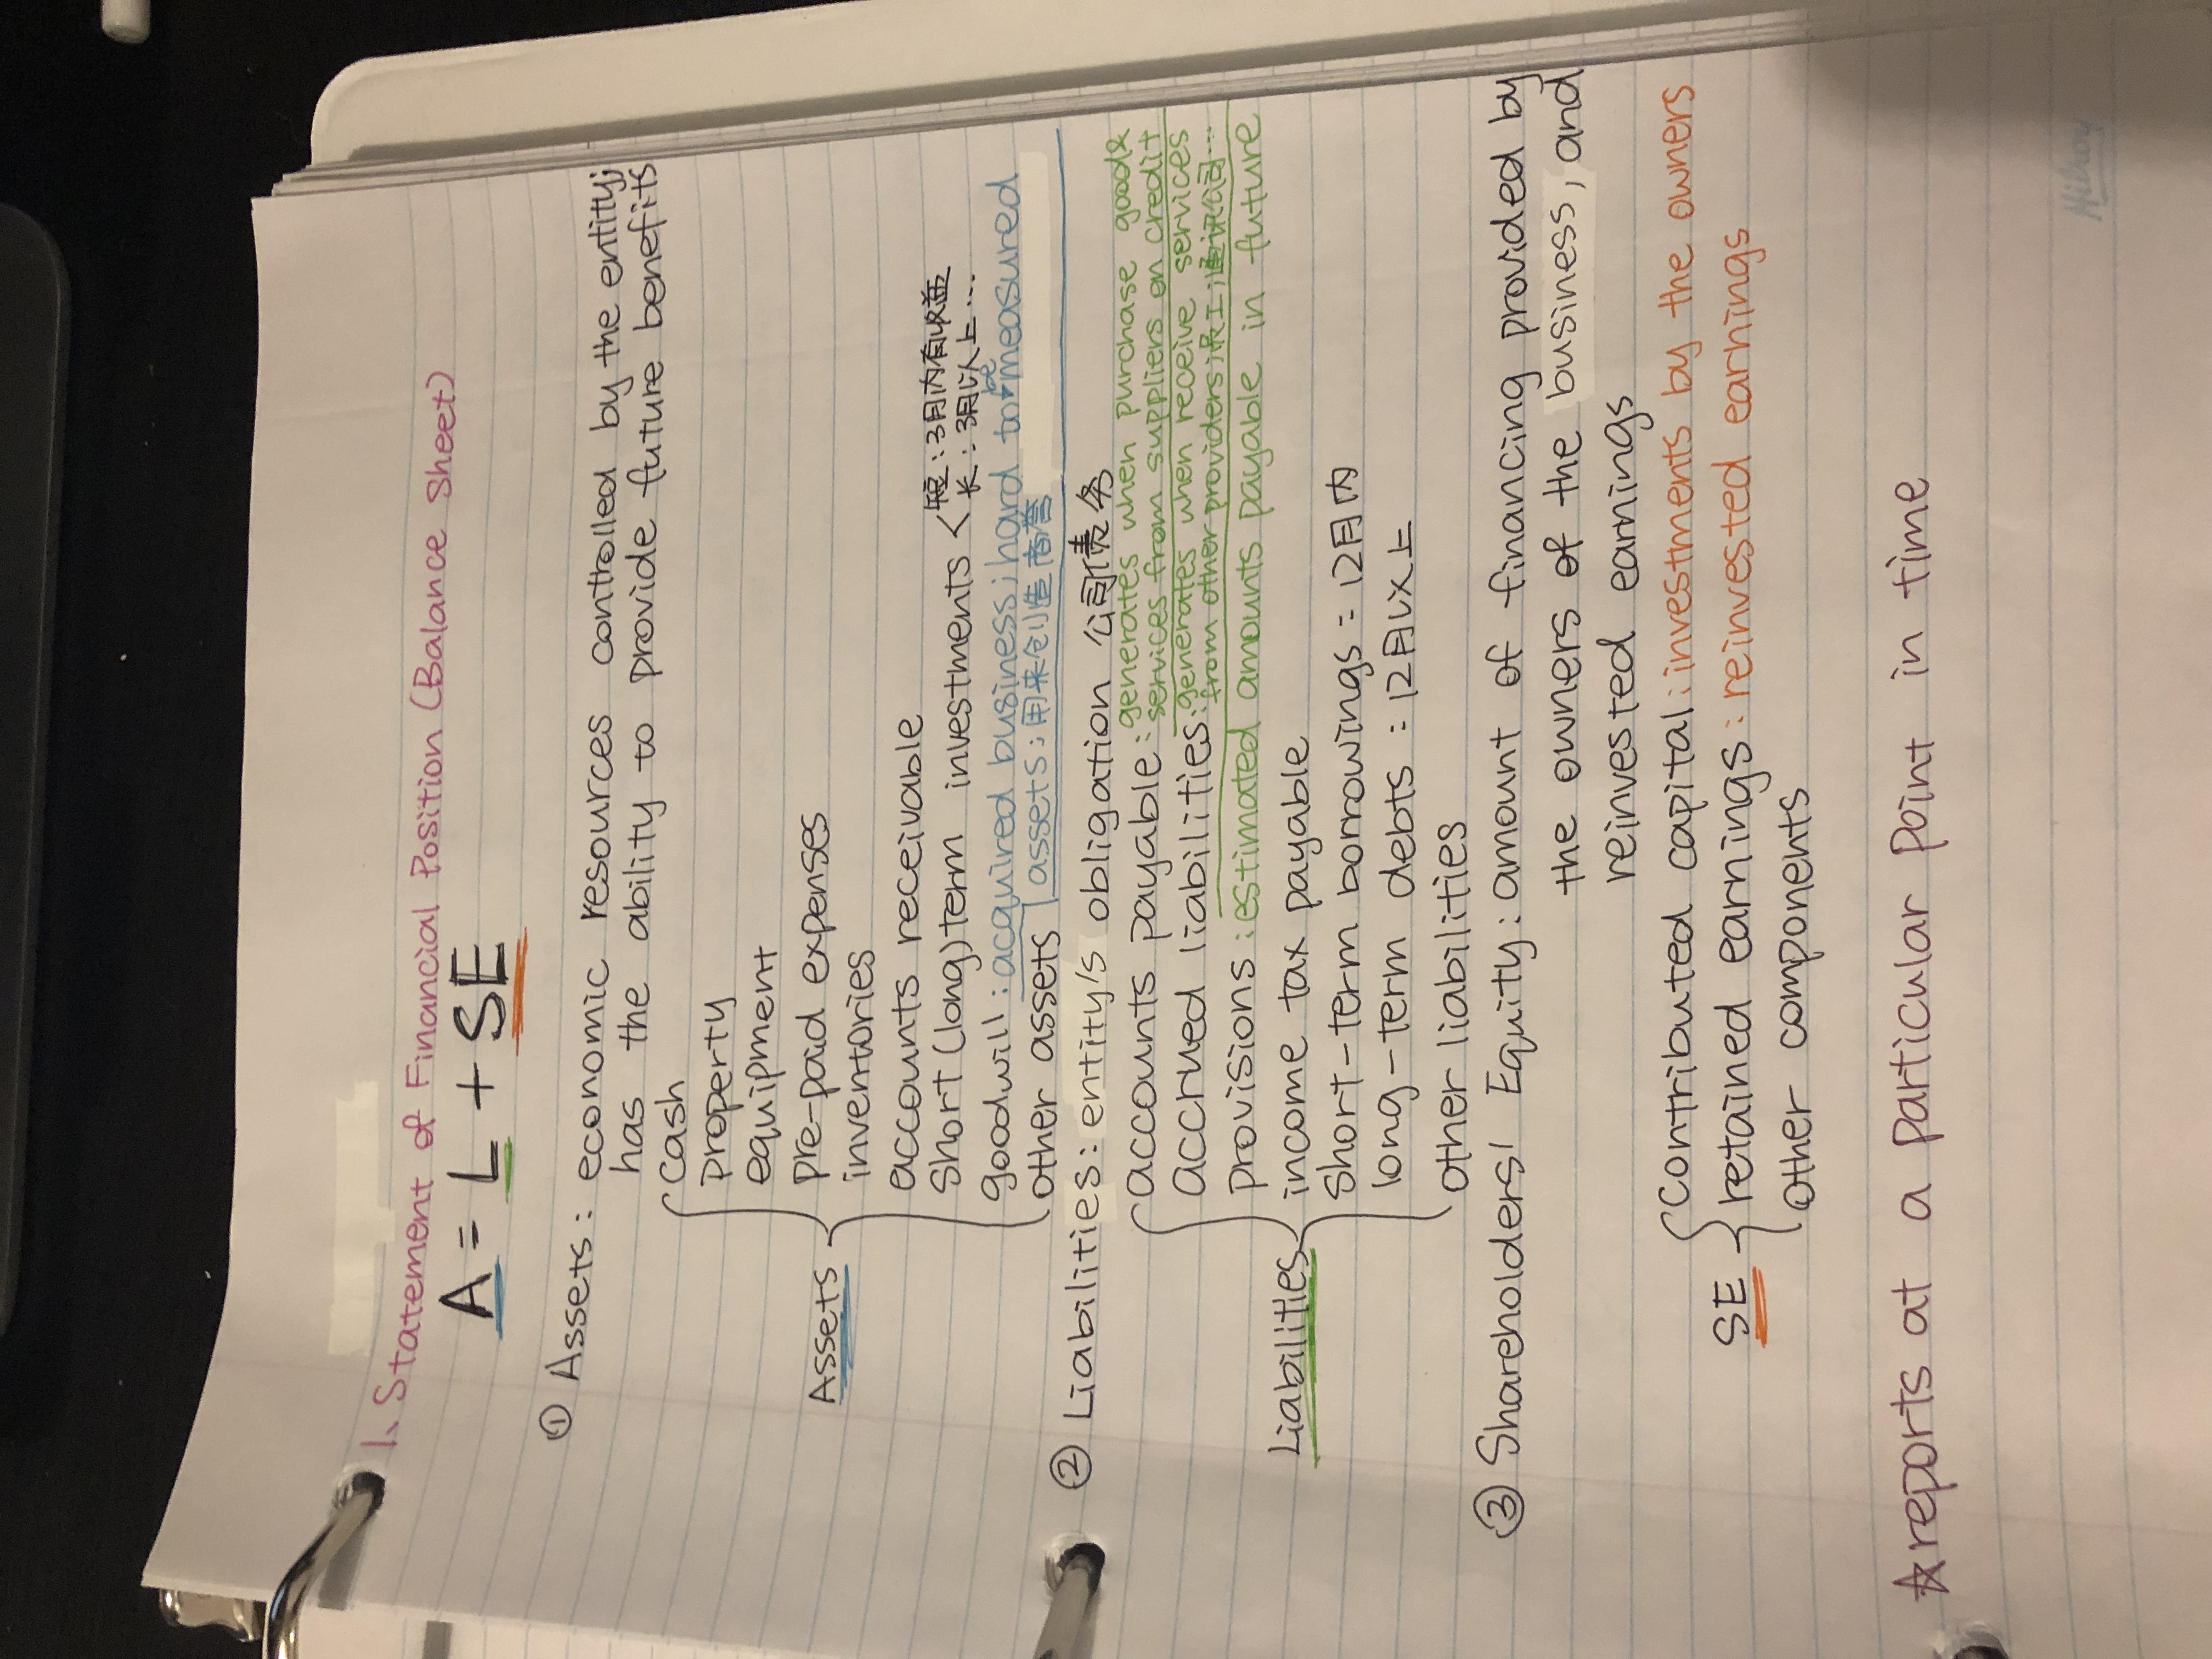 1、Statement of Financial Position (Balance Sheet)
A = L + SE
① Assets: economic resources controlled by the entity;
has the ability to provide future benefits
Assets
cash
property
equipment
pre-paid expenses
inventories
accounts receivable
short (long) term investments < 短:3月内有收益
长:3月以上...
goodwill: acquired business; hard to be measured
other assets assets; 用来创造商誉
② Liabilities: entity's obligation 公司债务
Liabilities
accounts payable: generates when purchase good&
services from suppliers on credit
accrued liabilities: generates when receive services
from other providers; 员工;
provisions: estimated amounts payable in future
income tax payable
short-term borrowings: 12月内
long-term debts: 12月以上
other liabilities
③ Shareholders' Equity: amount of financing provided by
the owners of the business, and
reinvested earnings
SE
contributed capital: investments by the owners
retained earnings: reinvested earnings
other components
☆reports at a particular point in time
Hilroy